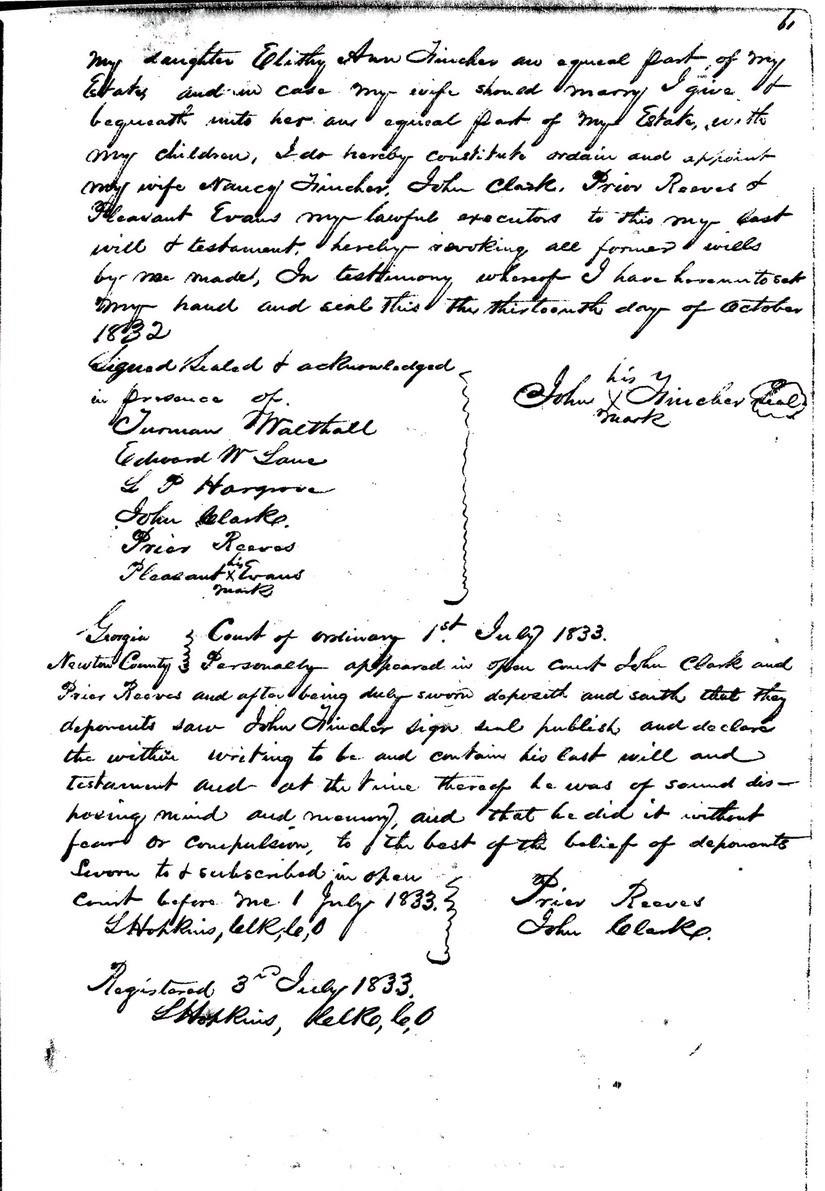 6
my daughter Elithy Ann Fincher an equeal part of my
Estate, and in case my wife should marry I give &
bequeath unto her an equeal part of my Estate, with
my children, I do hereby constitute ordain and appoint
my wife Nancy Fincher, John Clark, Prior Reeves &
Pleasant Evans my lawful executors to this my last
will & testament, hereby revoking all former wills
by me made, In testimony whereof I have hereunto set
my hand and seal this the thirteenth day of October
1832
Signed Sealed & acknowledged
in presence of.
Turman Walthall
Edward W Lane
G P Hargrove
John Clark.
Prior Reeves
Pleasant his X mark Evans
John his X mark Fincher Seal
Georgia } Court of ordinary 1st July 1833.
Newton County } Personally appeared in open court John Clark and
Prior Reeves and after being duly sworn deposith and saith that they
deponents saw John Fincher sign seal publish and declare
the within writing to be and contain his last will and
testament and at the time thereof he was of sound dis-
posing mind and memory, and that he did it without
fear or compulsion, to the best of the belief of deponents
Sworn to & subscribed in open
court before me 1 July 1833.
S Hopkins, Clk, C, O
Prior Reeves
John Clark.
Registered 3rd July 1833.
S Hopkins, Clk, C, O